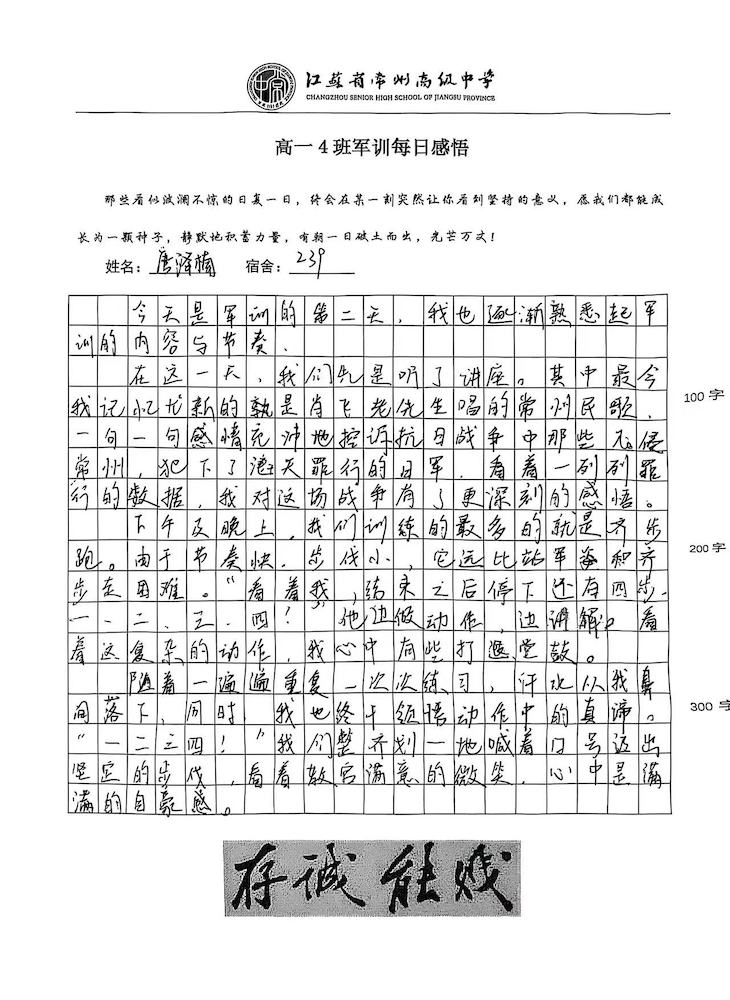 江苏省常州高级中学
CHANGZHOU SENIOR HIGH SCHOOL OF JIANGSU PROVINCE
高一4班军训每日感悟
那些看似波澜不惊的日复一日，终会在某一刻突然让你看到坚持的意义，愿我们都能成
长为一颗种子，静默地积蓄力量，有朝一日破土而出，光芒万丈！
姓名：唐泽楠 宿舍：239
今天是军训的第二天，我也逐渐熟悉起军
训的内容与节奏．
在这一天，我们先是听了讲座。其中最令
我记忆尤新的孰是肖飞老先生唱的常州民歌，
一句一句感情充沛地控诉抗日战争中那些侵
常州，犯下了滔天罪行的日军．看着一列列罪
行的数据，我对这场战争有了更深刻的感悟。
下午及晚上，我们训练的最多的就是齐步
跑。由于节奏快，步伐小，它远比站军姿和齐
步走困难。“看着我，结束之后停下还有四步．
一、二、三、四！”他边做动作，边讲解。看
着这复杂的动作，我心中有些打退堂鼓。
随着一遍遍重复，一次次练习，汗水从我鼻
间落下，同时，我也终于领悟动作中的真谛。
“一二三四！”我们整齐划一地喊着口号迈出
坚定的步伐，看着教官满意的微笑，心中是满
满的自豪感。
100字
200字
300字
存诚能贱